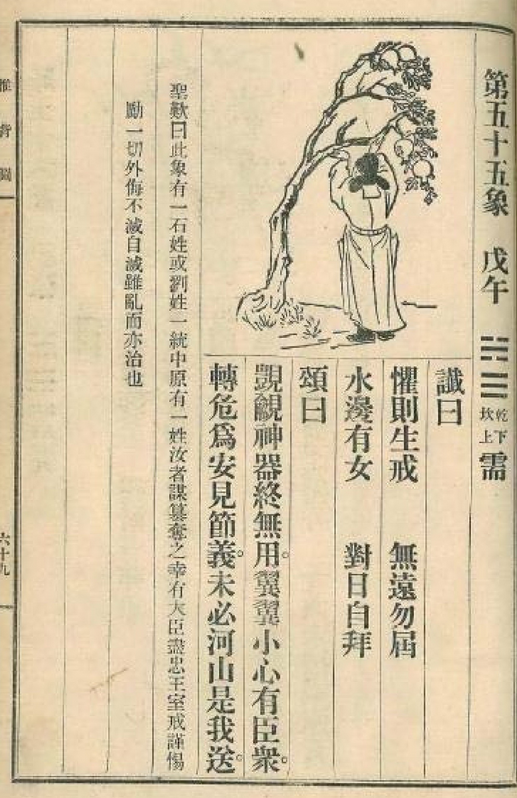 第五十五象 戊午 乾下坎上 需
讖曰
懼則生戒 無遠勿屆
水邊有女 對日自拜
頌曰
覬覦神器終無用。翼翼小心有臣衆。
轉危爲安見節義。未必河山是我送。
聖歎曰此象有一石姓或劉姓一統中原有一姓汝者謀篡奪之幸有大臣盡忠王室戒謹惕
勵一切外侮不滅自滅雖亂而亦治也
推背圖
六十九